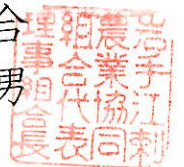 合
男
岩手江刺
農業協同
組合代表
理事組合長